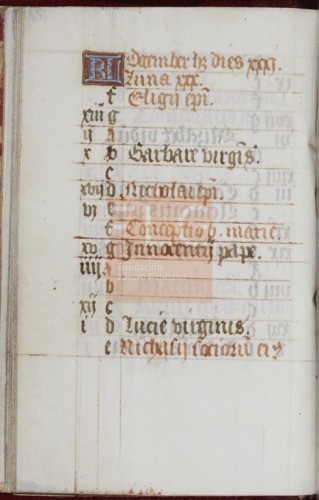 KL December hz dies xxxj.
Luna xxx.
f Eligij epi.
xiij g
ij A
x b Barbare virgis.
c
xviij d Nicholai epi.
vij e
f Conceptio b. marie
xv g Innocentij pape.
iiij A
b
xij c
i d Lucie virginis.
e Nichasij sociorū ei